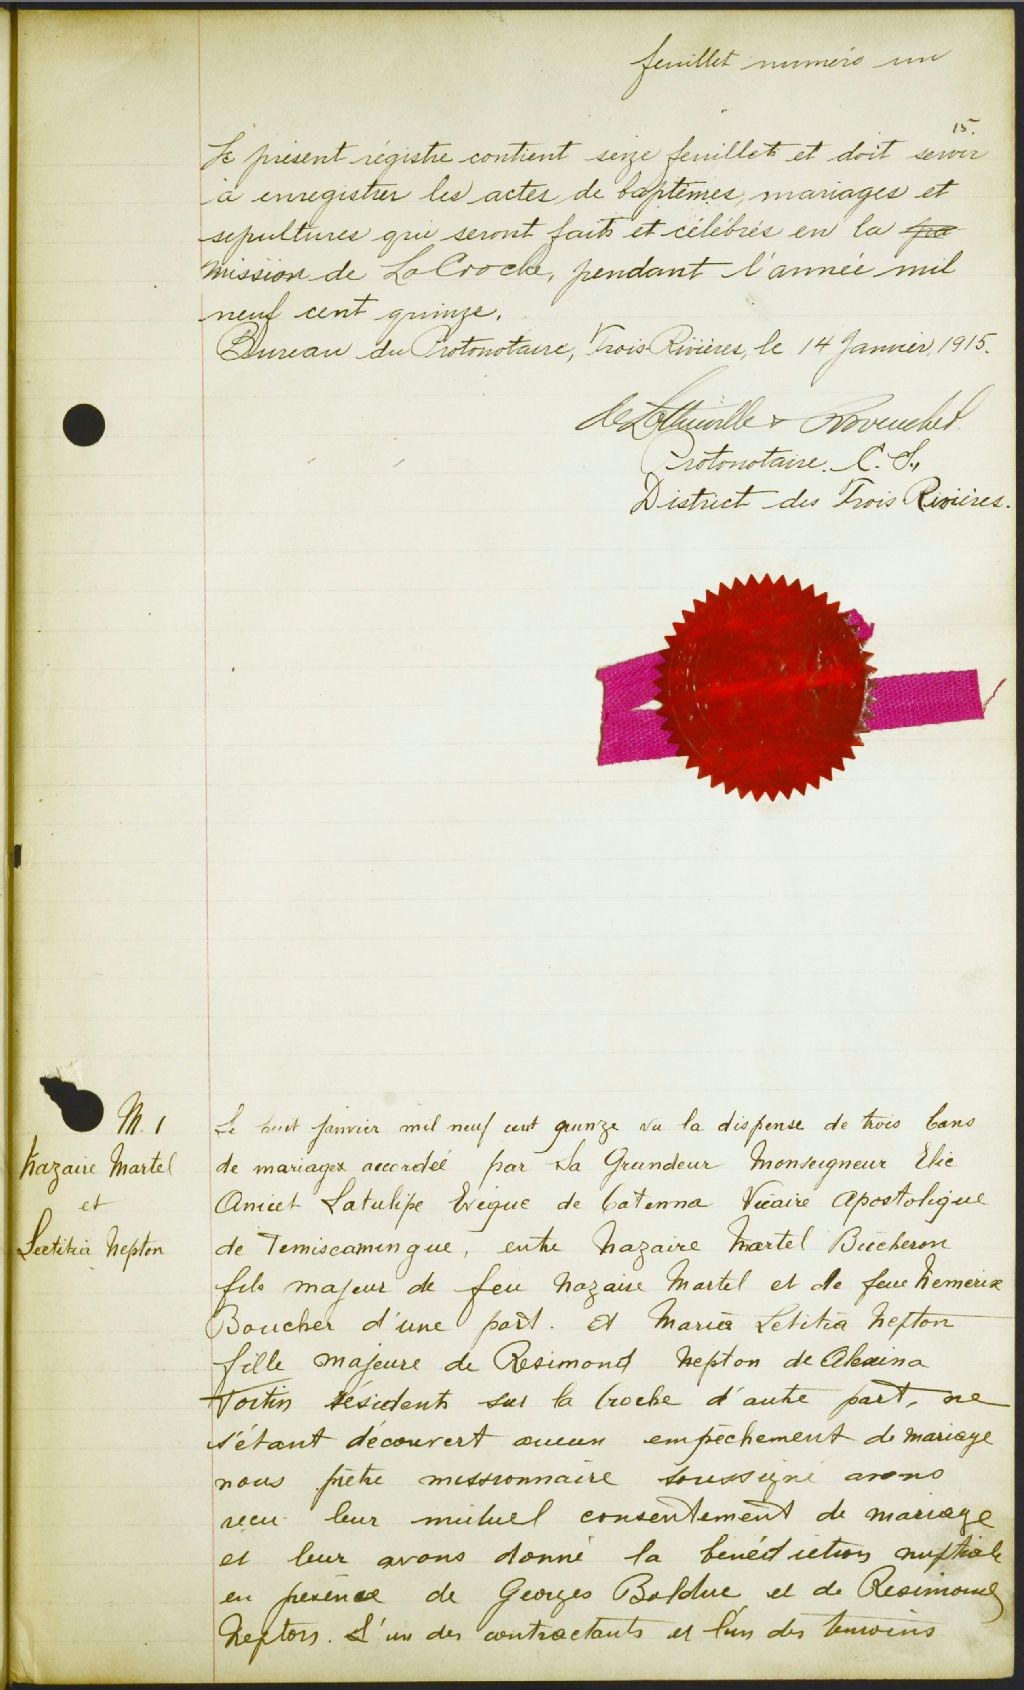 feuillet numéro un
15.
Le présent régistre contient seize feuillets et doit servir
à enregistrer les actes de baptêmes, mariages et
sépultures qui seront faits et célébrés en la
mission de La Croche, pendant l'année mil
neuf cent quinze.
Bureau du Protonotaire, Trois-Rivières, le 14 Janvier, 1915.
Protonotaire. C. S.,
District des Trois Rivières.
M. 1
Nazaire Martel
et
Lætitia Nepton
Le huit janvier mil neuf cent quinze vu la dispense de trois bans
de mariages accordée par Sa Grandeur Monseigneur Elie
Anicet Latulipe Evêque de Catenna Vicaire Apostolique
de Temiscamingue, entre Nazaire Martel Bûcheron
fils majeur de feu Nazaire Martel et de feue
Boucher d'une part. et Maria Letitia Nepton
fille majeure de Resimond Nepton de
Fortin résidents sur la Croche d'autre part, ne
s'étant découvert aucun empêchement de mariage
nous prêtre missionnaire soussigné avons
reçu leur mutuel consentement de mariage
et leur avons donné la bénédiction nuptiale
en présence de Georges Bolduc et de Resimond
Nepton. L'un des contractants et l'un des témoins